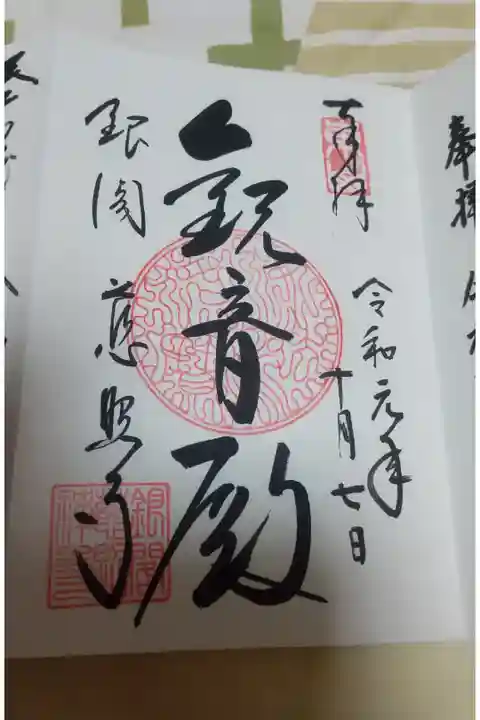 奉拝
令和元年
十月七日
觀音殿
銀閣 慈照寺
奉拝